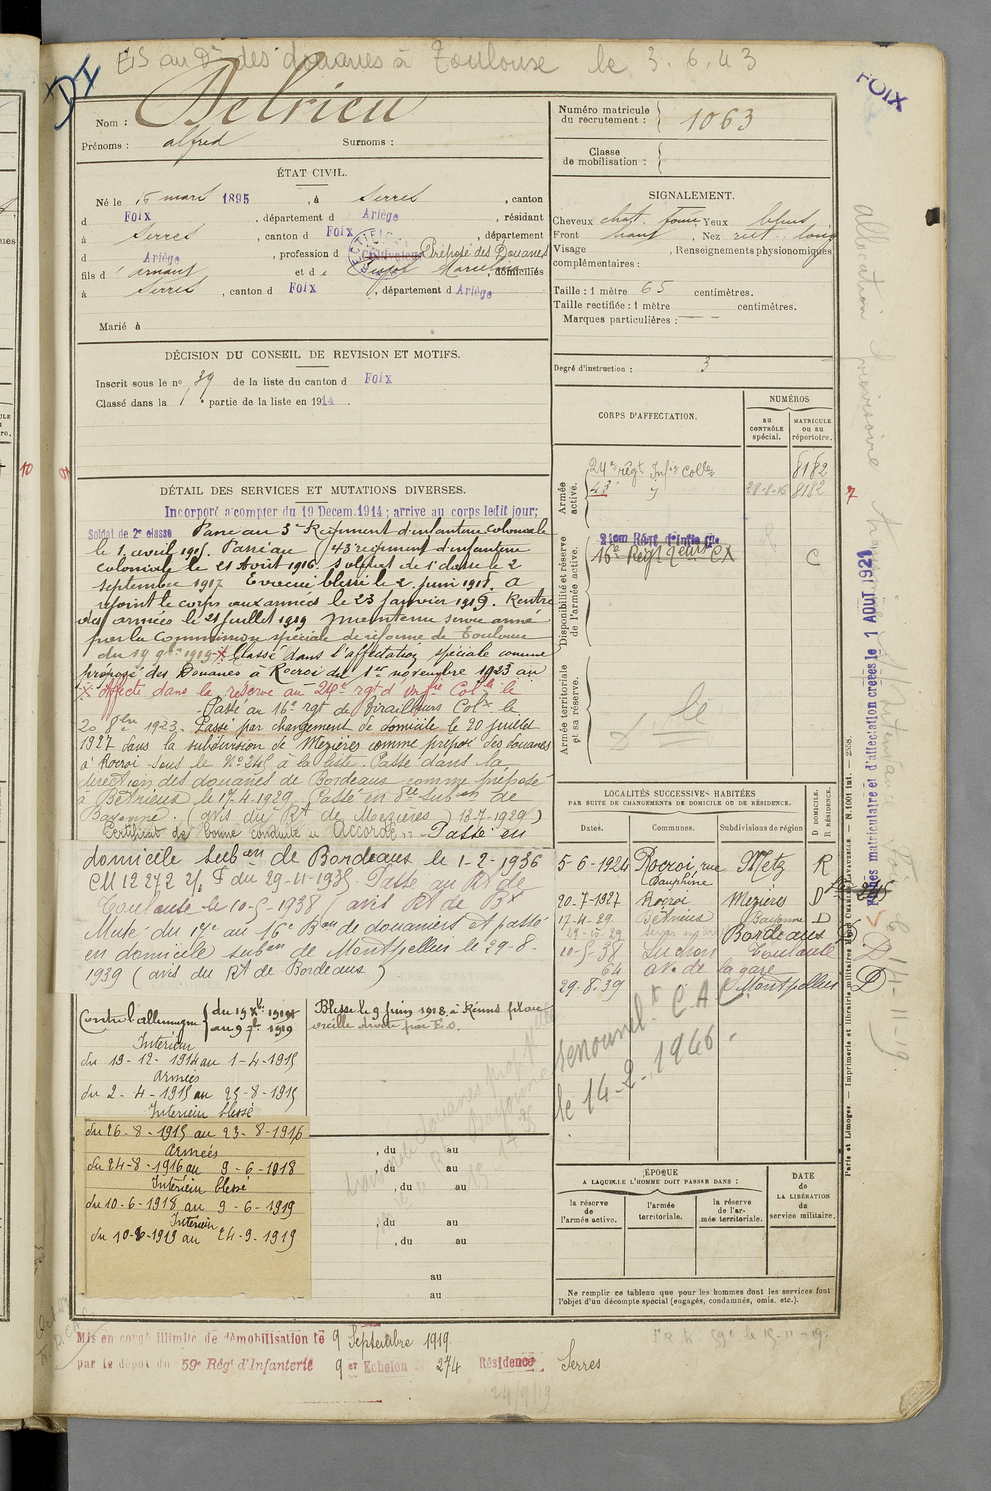 ES au Dr des douanes à Toulouse le 3.6.43
DI
FOIX
Nom : Delrieu
Prénoms : alfred Surnoms :
ÉTAT CIVIL.
Né le 15 mars 1895, à Serres, canton
d Foix, département d Ariège, résidant
à Serres, canton d Foix, département
d Ariège, profession d Cultivateur Préposé des Douanes
fils d' arnaut et d e Marie, domiciliés
à Serres, canton d Foix, département d Ariège
Marié à
DÉCISION DU CONSEIL DE REVISION ET MOTIFS.
Inscrit sous le no 39 de la liste du canton d Foix
Classé dans la 1e partie de la liste en 1914.
DÉTAIL DES SERVICES ET MUTATIONS DIVERSES.
Incorporé à compter du 19 Décem. 1914 ; arrivé au corps ledit jour;
Soldat de 2e classe Passé au 3e Régiment d'infanterie coloniale
le 1 avril 1915. Passé au 43 régiment d'infanterie
coloniale le 21 Août 1916. Soldat de 1e classe le 2
septembre 1917 Evacué blessé le 2 juin 1918. a
rejoint le corps aux armées le 23 janvier 1919. Rentré
des armées le 21 juillet 1919 Maintenu service armé
par la Commission spéciale de réforme de Toulouse
du 19 9bre 1919 X Classé dans l'affectation spéciale comme
préposé des Douanes à Rocroi du 1er novembre 1923 au
X Affecté dans la réserve au 24e rgt d'infie Colle le
Passé au 16e rgt de Tirailleurs Colx le
20 8bre 1923. Passé par changement de domicile le 20 juillet
1927 dans la subdivision de Mézières comme préposé des douanes
à Rocroi sous le No 245 à la liste. Passé dans la
direction des douanes de Bordeaux comme préposé
à Bétrieus le 17-4-1929. Passé en dle subon de
Bayonne. (avis du Rt de Mézières 18-7-1929)
Certificat de bonne conduite "Accordé" Passé en
domicile subon de Bordeaux le 1-2-1936
CM 12272 2/F du 29-11-1935 Passé au Rt de
Toulouse le 10-5-1938 avis Rt de Bx
Muté du 17e au 16e Bon de douaniers et passé
en domicile subon de Montpellier le 29-8-
1939 (avis du Rt de Bordeaux)
Contre l'allemagne { du 19 Xbre 1914
au 9 7bre 1919
Intérieur
du 19-12-1914 au 1-4-1915
Armées
du 2-4-1915 au 25-8-1915
Intérieur blessé
du 26-8-1915 au 23-8-1916
Armées
du 24-8-1916 au 9-6-1918
Intérieur blessé
du 10-6-1918 au 9-6-1919
Intérieur
du 10-6-1919 au 24-9-1919
Blessé le 9 juin 1918, à Reims plaie
oreille droite par E.O.
, du au
, du au
, du au
, du au
, du au
au
au
Mis en congé illimité de démobilisation le 9 Septembre 1919
par le dépôt du 59e Régt d'Infanterie 9er Echelon 274 Résidence Serres
24/9/19
Numéro matricule du recrutement : 1063
Classe de mobilisation :
SIGNALEMENT.
Cheveux chat. foncé Yeux bleus
Front haut, Nez rect. long
Visage, Renseignements physionomiques
complémentaires :
Taille : 1 mètre 65 centimètres.
Taille rectifiée : 1 mètre centimètres.
Marques particulières :
Degré d'instruction : 3
CORPS D'AFFECTATION.
NUMÉROS
AU CONTRÔLE spécial.
MATRICULE OU AU répertoire.
Armée active.
24e régt Infie Colle 8182
43 " 28-8-16 8182
7
Disponibilité et réserve de l'armée active.
16e Régt Tireurs CX C
Armée territoriale et sa réserve
LOCALITÉS SUCCESSIVES HABITÉES
PAR SUITE DE CHANGEMENTS DE DOMICILE OU DE RÉSIDENCE.
Dates. Communes. Subdivisions de région D DOMICILE. R RÉSIDENCE.
5-6-1924 Rocroi rue Dauphine Metz R
20-7-1927 Rocroi Mézières D
17-4-29 Bétrieus Bayonne D
Bordeaux D
10-5-38 Luchon Toulouse D
64 av. de la gare
29-8-39 Montpellier D
Renouvel. t C.A.C.
le 14-2-1946
ÉPOQUE
A LAQUELLE L'HOMME DOIT PASSER DANS :
la réserve de l'armée active.
l'armée territoriale.
la réserve de l'armée territoriale.
DATE de LA LIBÉRATION du service militaire.
Ne remplir ce tableau que pour les hommes dont les services font
l'objet d'un décompte spécial (engagés, condamnés, omis, etc.).
Fiches matriculaire et d'affectation créées le 1 AOUT 1921
Paris et Limoges. — Imprimerie et librairie militaires Henri CHARLES-LAVAUZELLE. — N. 1001 int. — 2558.